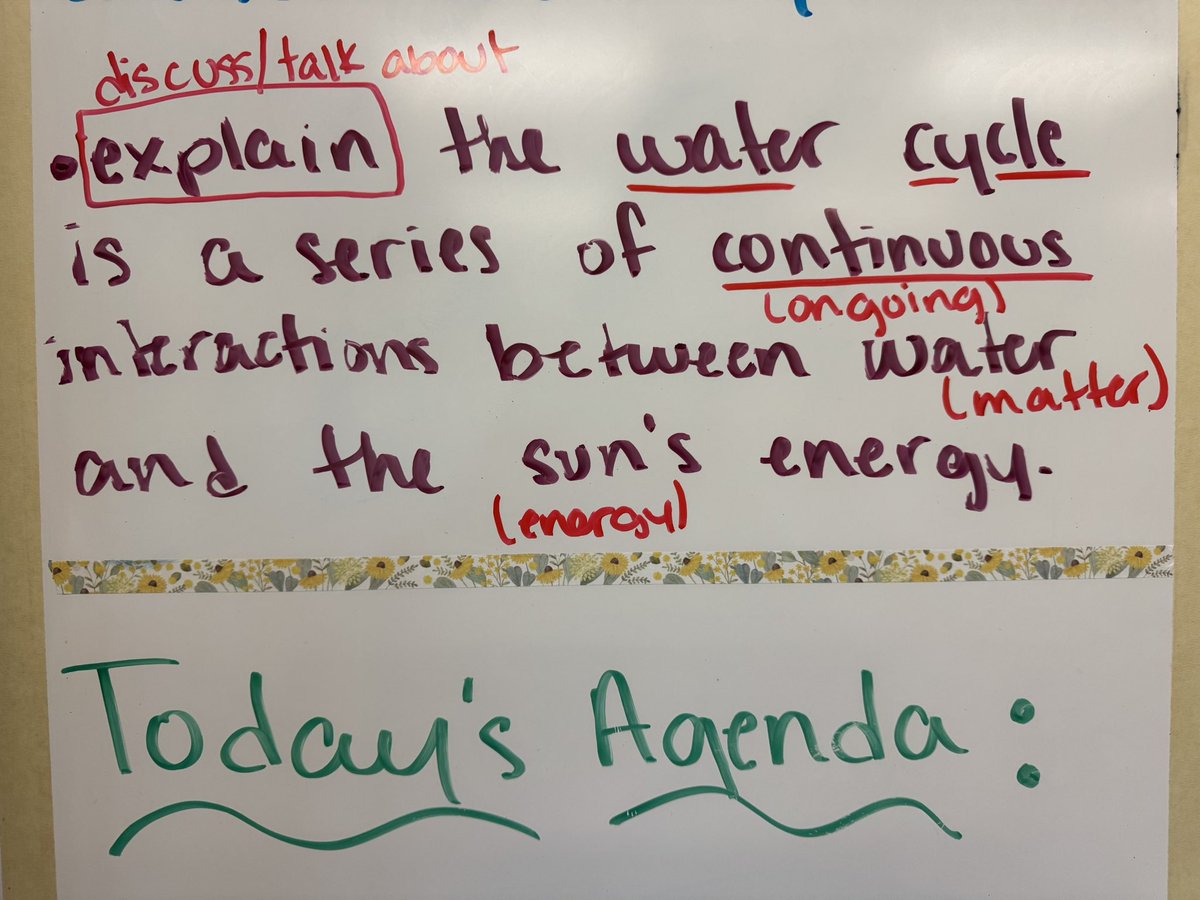 discuss/talk about
• explain the water cycle
is a series of continuous
(ongoing)
interactions between water
(matter)
and the sun's energy.
(energy)
Today's Agenda: